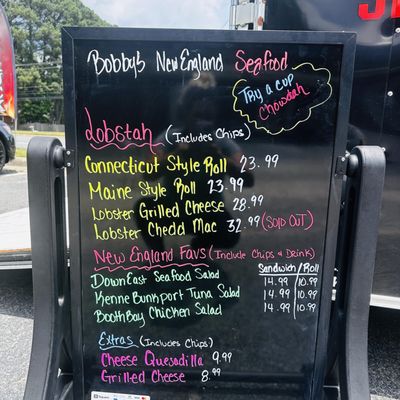 Bobby's New England Seafood
Try A CUP
Chowdah
Lobstah (Includes Chips)
Connecticut Style Roll 23.99
Maine Style Roll 23.99
Lobster Grilled Cheese 28.99
Lobster Chedd Mac 32.99 (SOLD OUT)
New England Favs (Include Chips & Drink)
Sandwich/Roll
Down East Seafood Salad 14.99 10.99
Kenne Bunkport Tuna Salad 14.99 10.99
Booth Bay Chicken Salad 14.99 10.99
Extras (Includes Chips)
Cheese Quesadilla 9.99
Grilled Cheese 8.99